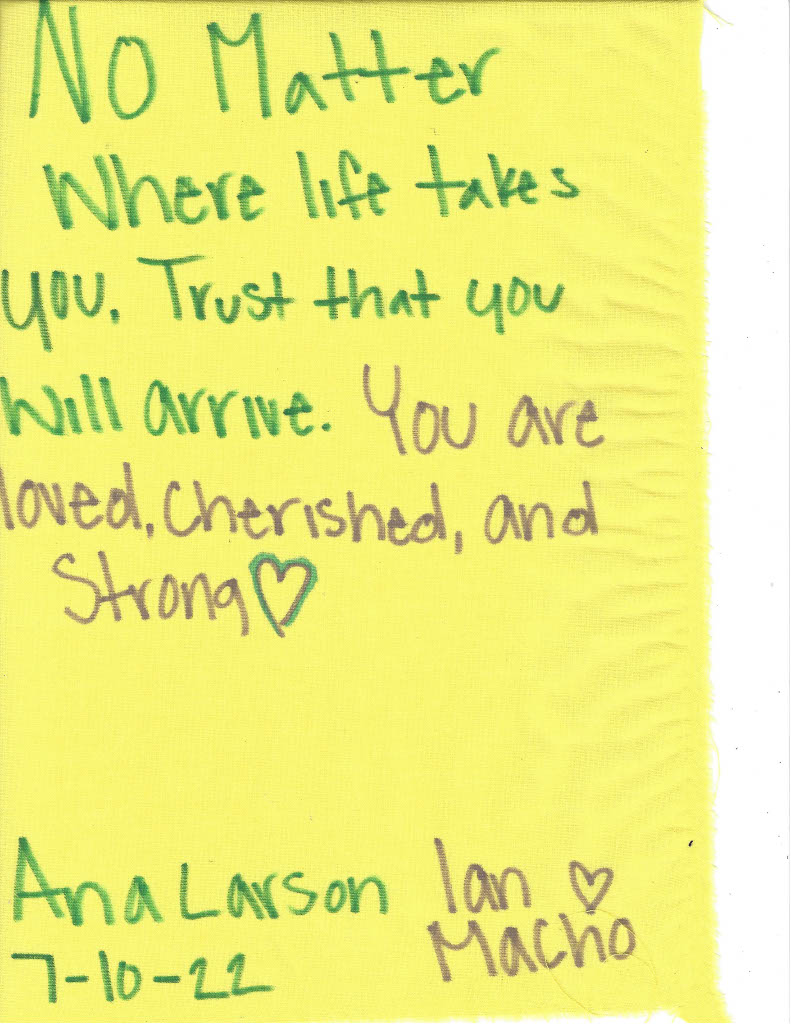 No Matter
Where life takes
you. Trust that you
will arrive. You are
loved, cherished, and
Strong ♡
Ana Larson
Ian ♡
Macho
7-10-22